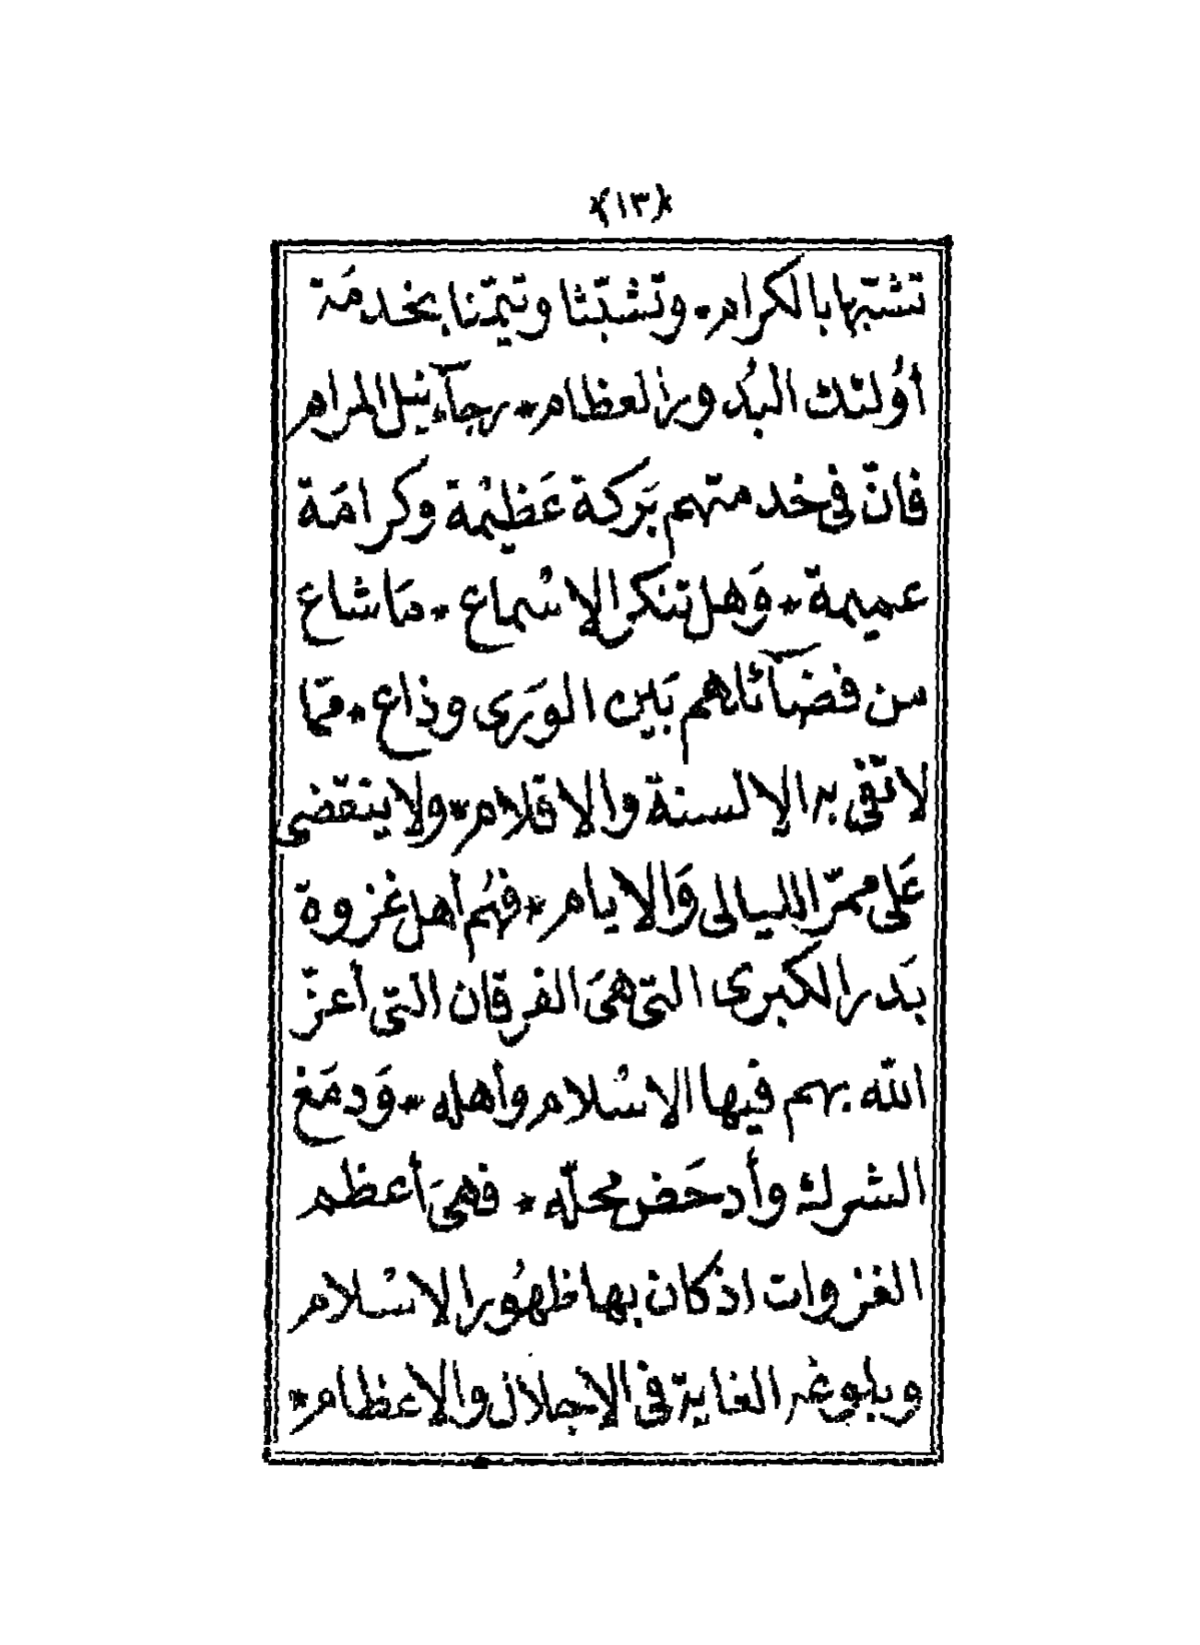 ﴿١٣﴾
تشبّها بالكرام * وتَشبّثا وتيمّنا بخدمَة
أوُلئك البُدور العظام * رجآء نيل المرام
فانّ في خدمتهم بَركة عَظيْمة وكرامَة
عميمة * وَهل تنكر الاسْماع * مَا شاعَ
من فضَآئلهم بَين الورَى وذاع * ممّا
لا تفي به الالسنة والاقلام * ولا ينقضي
عَلى ممرّ الليالي وَالايام * فهُم أهل غزوة
بَدر الكبرى التي هيَ الفرقان التي أعزّ
الله بهم فيها الاسْلام وأهله * وَدمَغ
الشرك وأدحَض محلّه * فهيَ أعظم
الغزوات اذ كان بها ظهُور الاسْلام
وبلوغه الغاية في الاجلال والاعظام *